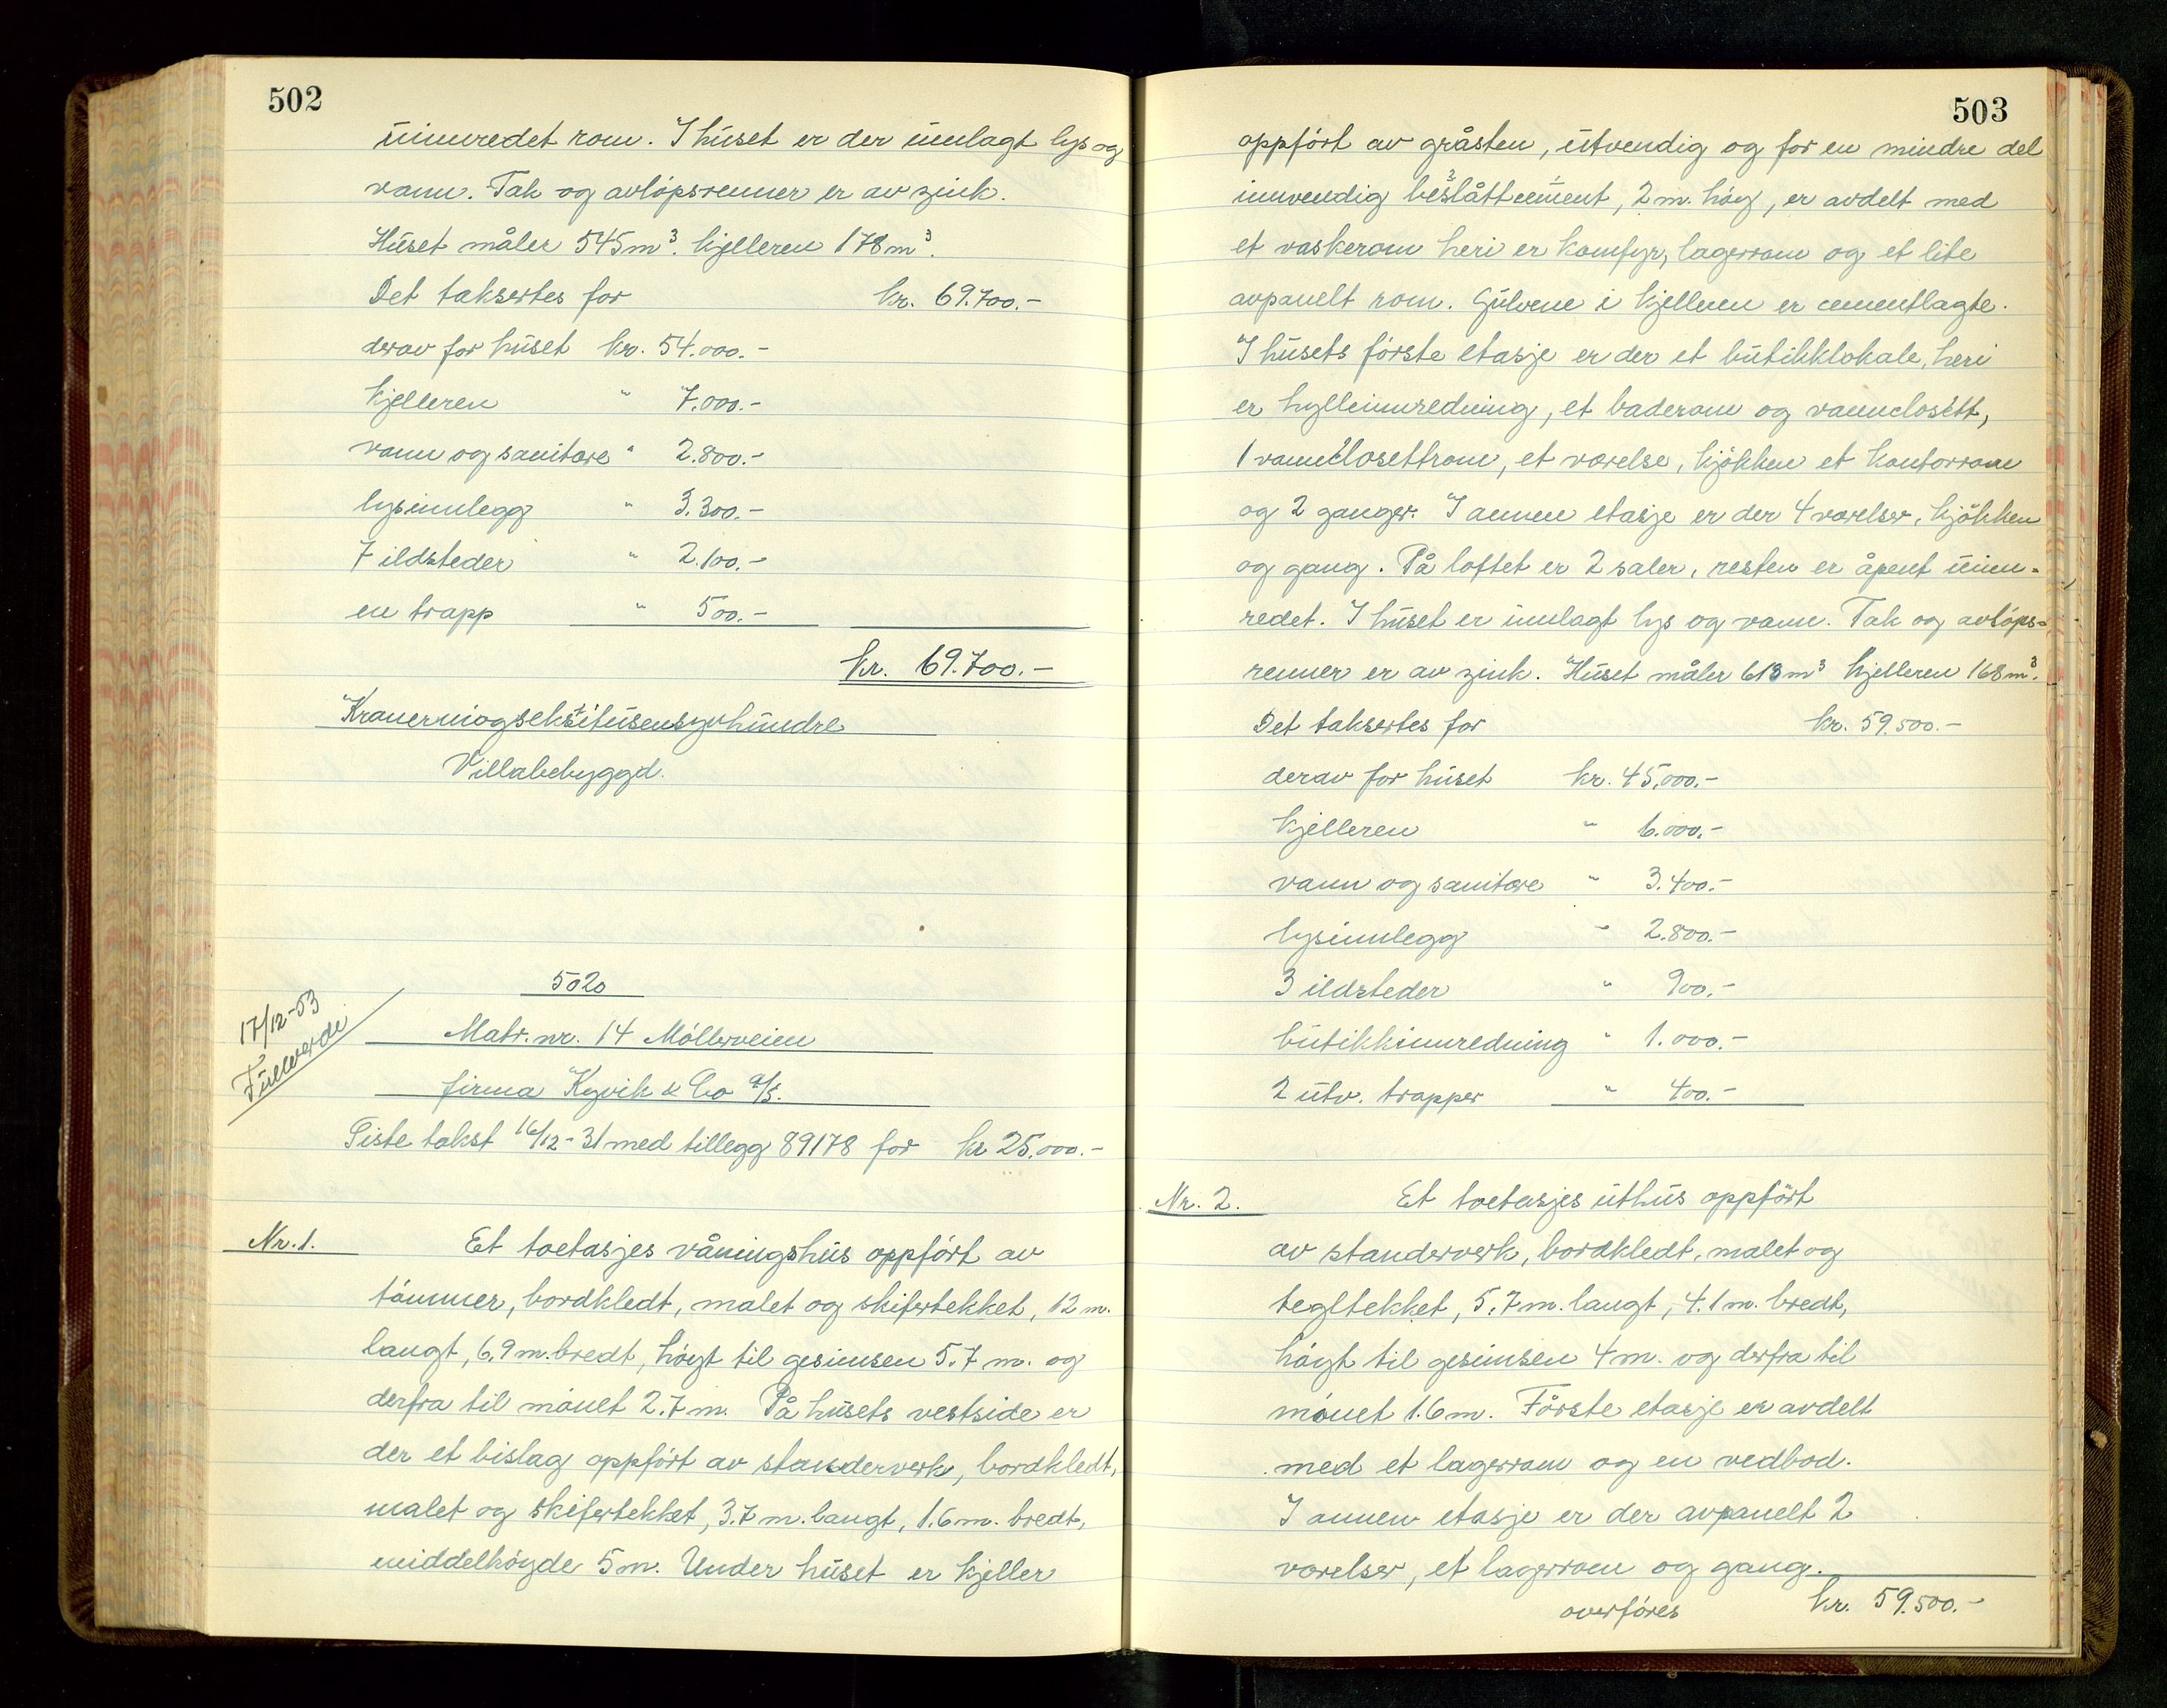 502
uinnredet rom. I huset er der innlagt lys og
vann. Tak og avlöpsrenner er av zink.
Huset måler 545 m³. kjelleren 178 m³.
Det takseres for kr. 69.700.-
derav for huset kr. 54.000.-
kjelleren " 7.000.-
vann og sanitære " 2.800.-
lysinnlegg " 3.300.-
7 ildsteder " 2.100.-
en trapp " 500.-
kr. 69.700.-
Villabebyggd.
5020
17/12-53
Fullverdi
Matr. nr. 14 Möllerveien
firma Kyvik & Co a/s.
Siste takst 16/12-31 med tillegg 89178 for kr 25.000.-
Nr. 1. Et toetasjes våningshus oppfört av
tömmer, bordkledt, malet og skifertekket, 12 m.
langt, 6,9 m. bredt, höyt til gesimsen 5.7 m. og
derfra til mönet 2.7 m. På husets vestside er
der et bislag oppfört av standerverk, bordkledt,
malet og skifertekket, 3.7 m. langt, 1.6 m. bredt,
middelhöyde 5 m. Under huset er kjeller
503
oppfört av gråsten, utvendig og for en mindre del
innvendig beslått cement, 2 m. höy, er avdelt med
et vaskerom heri er komfyr, lagerrom og et lite
avpanelt rom. Gulvene i kjelleren er cementlagte.
I husets förste etasje er der et butikklokale, heri
er hylleinnredning, et baderom og vannclosett,
1 vannclosettrom, et værelse, kjökken et kontorrom
og 2 ganger. I annen etasje er der 4 værelser, kjökken
og gang. På loftet er 2 saler, resten er åpent uinn-
redet. I huset er innlagt lys og vann. Tak og avlöps-
renner er av zink. Huset måler 613 m³ kjelleren 168 m³.
Det takseres for kr. 59.500.-
derav for huset kr. 45.000.-
kjelleren " 6.000.-
vann og sanitære " 3.400.-
lysinnlegg " 2.800.-
3 ildsteder " 900.-
butikkinnredning " 1.000.-
2 utv. trapper " 400.-
Nr. 2. Et toetasjes uthus oppfört
av standerverk, bordkledt, malet og
tegltekket, 5.7 m. langt, 4.1 m. bredt,
höyt til gesimsen 4 m. og derfra til
mönet 1.6 m. Förste etasje er avdelt
med et lagerrom og en vedbod.
I annen etasje er der avpanelt 2
værelser, et lagerrom og gang.
overföres kr. 59.500.-